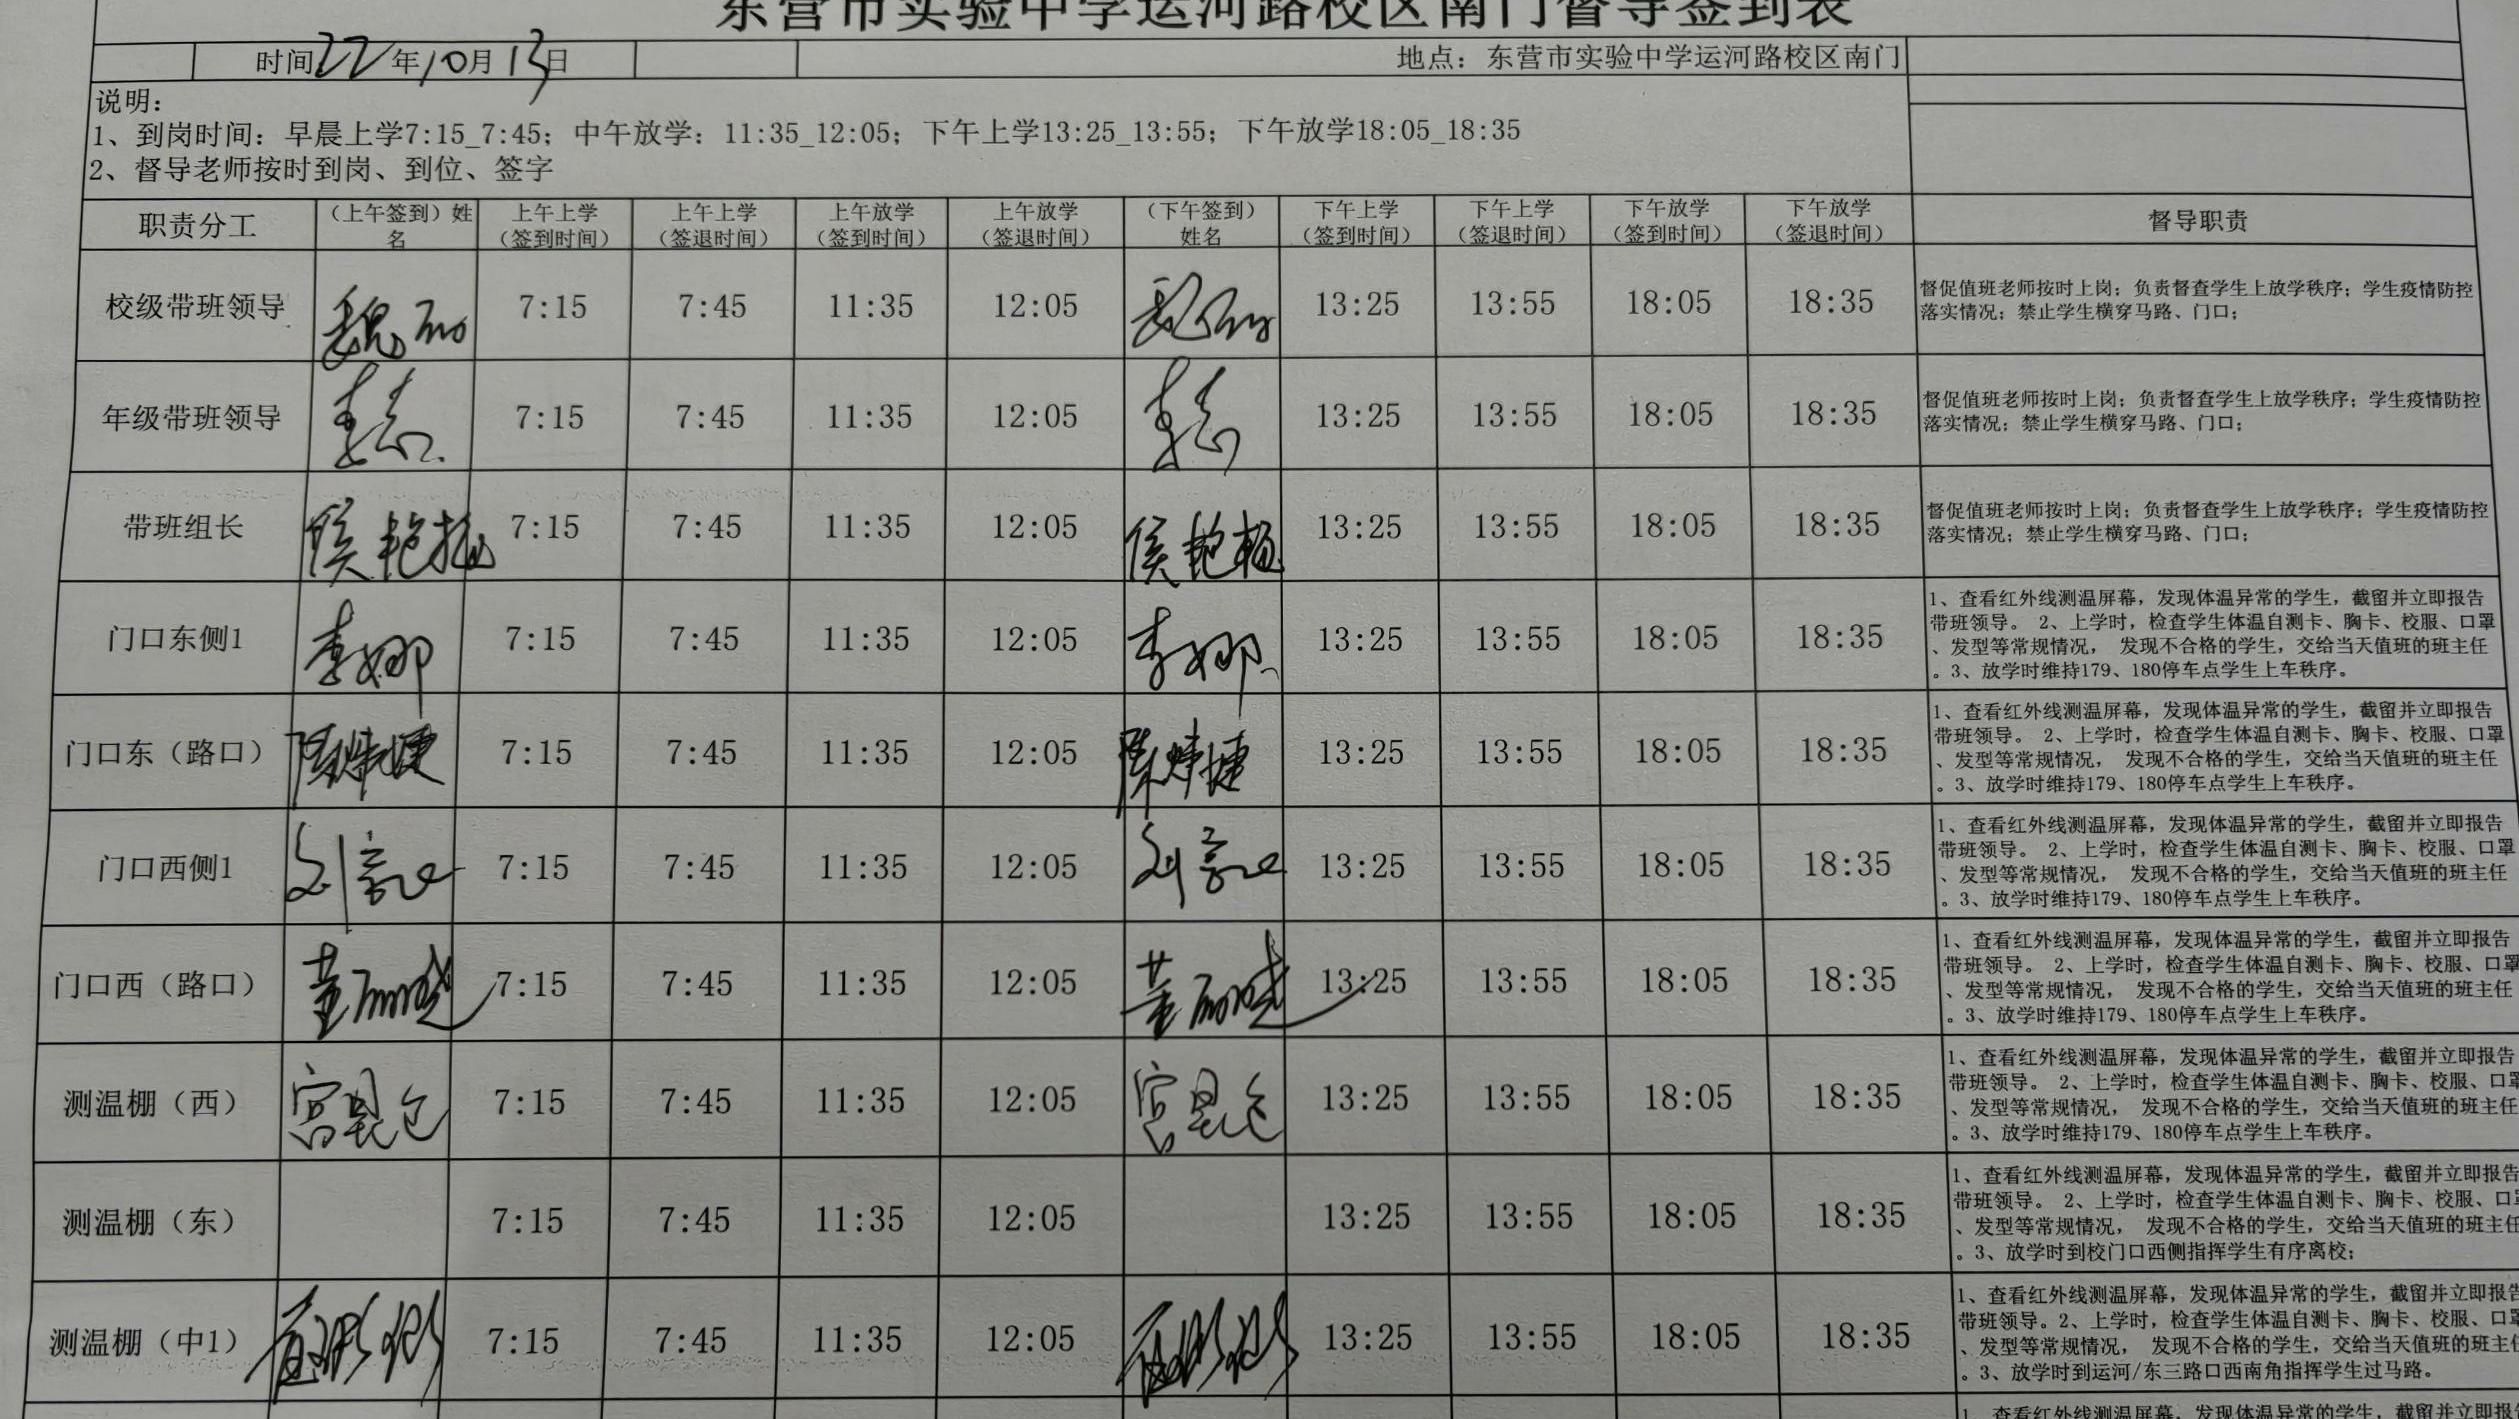 东营市实验中学运河路校区南门督导签到表
时间22年10月13日 地点：东营市实验中学运河路校区南门
说明：
1、到岗时间：早晨上学7:15_7:45；中午放学：11:35_12:05；下午上学13:25_13:55；下午放学18:05_18:35
2、督导老师按时到岗、到位、签字
职责分工 （上午签到）姓名 上午上学（签到时间） 上午上学（签退时间） 上午放学（签到时间） 上午放学（签退时间） （下午签到）姓名 下午上学（签到时间） 下午上学（签退时间） 下午放学（签到时间） 下午放学（签退时间） 督导职责
校级带班领导 魏丽 7:15 7:45 11:35 12:05 魏丽 13:25 13:55 18:05 18:35
督促值班老师按时上岗；负责督查学生上放学秩序；学生疫情防控
落实情况；禁止学生横穿马路、门口；
年级带班领导 7:15 7:45 11:35 12:05 13:25 13:55 18:05 18:35
督促值班老师按时上岗；负责督查学生上放学秩序；学生疫情防控
落实情况；禁止学生横穿马路、门口；
带班组长 侯艳梅 7:15 7:45 11:35 12:05 侯艳梅 13:25 13:55 18:05 18:35
督促值班老师按时上岗；负责督查学生上放学秩序；学生疫情防控
落实情况；禁止学生横穿马路、门口；
门口东侧1 李娜 7:15 7:45 11:35 12:05 李娜 13:25 13:55 18:05 18:35
1、查看红外线测温屏幕，发现体温异常的学生，截留并立即报告
带班领导。 2、上学时，检查学生体温自测卡、胸卡、校服、口罩
、发型等常规情况， 发现不合格的学生，交给当天值班的班主任
。3、放学时维持179、180停车点学生上车秩序。
门口东（路口） 7:15 7:45 11:35 12:05 13:25 13:55 18:05 18:35
1、查看红外线测温屏幕，发现体温异常的学生，截留并立即报告
带班领导。 2、上学时，检查学生体温自测卡、胸卡、校服、口罩
、发型等常规情况， 发现不合格的学生，交给当天值班的班主任
。3、放学时维持179、180停车点学生上车秩序。
门口西侧1 7:15 7:45 11:35 12:05 13:25 13:55 18:05 18:35
1、查看红外线测温屏幕，发现体温异常的学生，截留并立即报告
带班领导。 2、上学时，检查学生体温自测卡、胸卡、校服、口罩
、发型等常规情况， 发现不合格的学生，交给当天值班的班主任
。3、放学时维持179、180停车点学生上车秩序。
门口西（路口） 7:15 7:45 11:35 12:05 13:25 13:55 18:05 18:35
1、查看红外线测温屏幕，发现体温异常的学生，截留并立即报告
带班领导。 2、上学时，检查学生体温自测卡、胸卡、校服、口罩
、发型等常规情况， 发现不合格的学生，交给当天值班的班主任
。3、放学时维持179、180停车点学生上车秩序。
测温棚（西） 宫昆仑 7:15 7:45 11:35 12:05 宫昆仑 13:25 13:55 18:05 18:35
1、查看红外线测温屏幕，发现体温异常的学生，截留并立即报告
带班领导。 2、上学时，检查学生体温自测卡、胸卡、校服、口罩
、发型等常规情况， 发现不合格的学生，交给当天值班的班主任
。3、放学时维持179、180停车点学生上车秩序。
测温棚（东） 7:15 7:45 11:35 12:05 13:25 13:55 18:05 18:35
1、查看红外线测温屏幕，发现体温异常的学生，截留并立即报告
带班领导。 2、上学时，检查学生体温自测卡、胸卡、校服、口罩
、发型等常规情况， 发现不合格的学生，交给当天值班的班主任
。3、放学时到校门口西侧指挥学生有序离校；
测温棚（中1） 7:15 7:45 11:35 12:05 13:25 13:55 18:05 18:35
1、查看红外线测温屏幕，发现体温异常的学生，截留并立即报告
带班领导。2、上学时，检查学生体温自测卡、胸卡、校服、口罩
、发型等常规情况， 发现不合格的学生，交给当天值班的班主任
。3、放学时到运河/东三路口西南角指挥学生过马路。
1、查看红外线测温屏幕，发现体温异常的学生，截留并立即报告